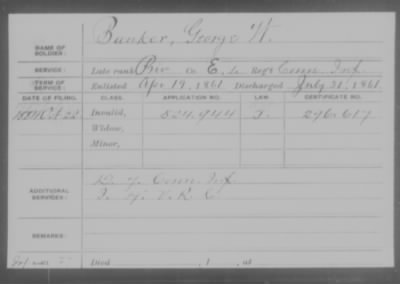 NAME OF SOLDIER: Bunker, George W.
SERVICE: Late rank Priv Co. E, Reg't Conn. Inf.
TERM OF SERVICE: Enlisted Apr 19, 1861 Discharged July 31, 1861
DATE OF FILING. CLASS. APPLICATION NO. LAW. CERTIFICATE NO.
Invalid, 524.944 296.617
Widow,
Minor,
ADDITIONAL SERVICES: D. 7. Conn. Inf.
V. R. C.
REMARKS:
Died , 1 , at